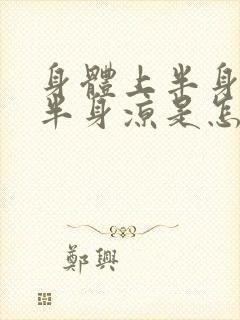 身體上半身
半身涼是怎
鄭興